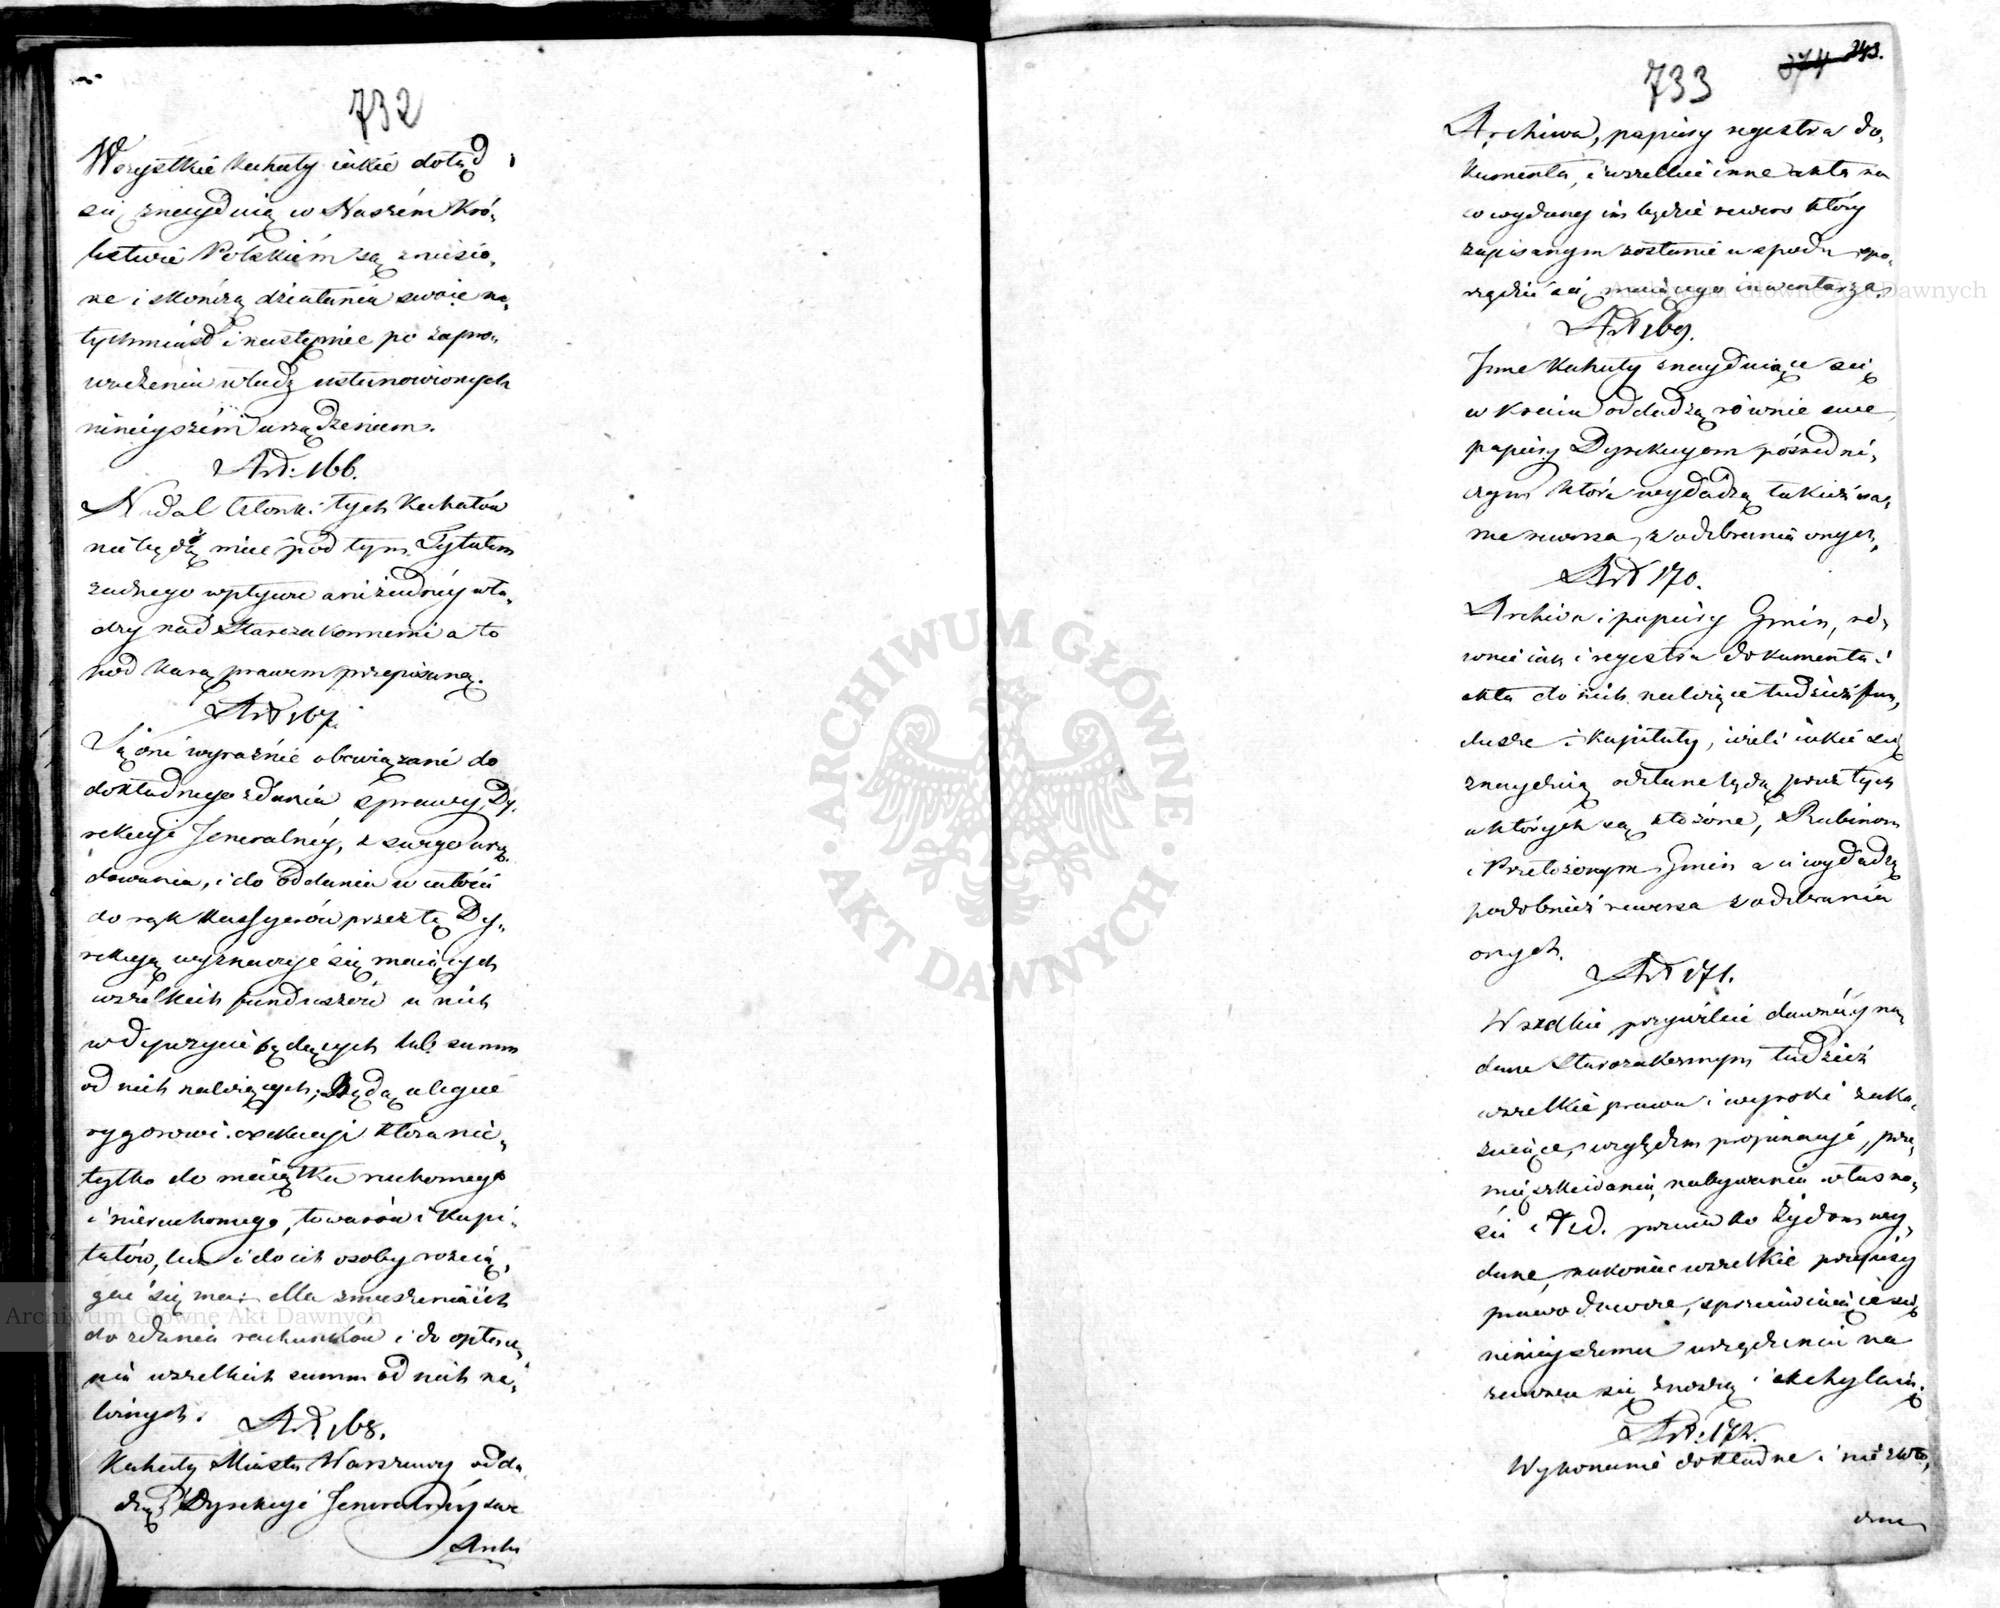 732
Wszystkie Kahały iakie dotąd
się znayduią w Naszém Kró,
lestwie Polskiém są zniesio,
ne i skończą działania swoie na,
tychmiast i następnie po zapro,
wadzeniu władz ustanowionych
ninieyszém urządzeniem.
Art: 166.
Nadal Członki tych Kahałów
nie będą mieć pod tym Tytułem
żadnego wpływu ani żadnéy wła,
dzy nad Starozakonnemi a to
pod karą prawem przepisaną.
Art 167.
Są oni wyraźnie obowiązani do
dokładnego zdania sprawy Dy,
rekcyi Jeneralnéy, z swego urzę,
dowania, i do oddania w całości
do rąk Kassyerów przez tę Dy,
rekcyą wyznaczyć się maiących
wszelkich funduszów u nich
w depozycie będących lub summ
od nich należących; Będą uledz
rygorowi exekucyi która nie,
tylko do maiątku ruchomego
i nieruchomego, towarów i Kapi,
tałów, lecz i do ich osoby rozcią,
gać się ma; dla zmuszenia ich
do zdania rachunków i do opłace,
nia wszelkich summ od nich na,
leżnych.
Art. 168.
Kahały Miasta Warszawy odda,
dzą Dyrekcyi Jeneralnéy swe
Archi
733
374 243.
Archiwa, papiery regestra do,
kumenta, i wszelkie inne akta na
co wydany im będzie rewers który
zapisanym zostanie u spodu spo,
rządzić się maiącego inwentarza.
Art 169.
Inne Kahały znayduiące się
w Kraiu oddadzą równie swe
papiery Dyrekcyom pośredni,
czym które wydadzą takież sa,
me rewersa, z odebrania onych,
Art 170.
Archiva i papiery Gmin, ró,
wnie iak i regestra dokumenta i
akta do nich należące tudzież fun,
dusze i kapitały, ieżeli iakie się
znayduią oddane będą przez tych
u których są złożone, Rabinom
i Przełożonym Gmin a ci wydadzą
podobnież rewersa z odebrania
onych.
Art 171.
Wszelkie przywileie dawniéy na,
dane Starozakonnym tudzież
wszelkie prawa i wyroki zaka,
zuiące, względem propinacyi, prze,
mieszkiwania, nabywania własno,
ści i t.d. przeciwko Żydom wy,
dane, nakoniec wszelkie przepisy
prawodawcze, sprzeciwiaiące się
ninieyszemu urządzeniu na
zawsze się znoszą i uchylaią.
Art: 172.
Wykonanie dokładne i niezwło,
czne
Archiwum Główne Akt Dawnych
Archiwum Główne Akt Dawnych
ARCHIWUM GŁÓWNE
AKT DAWNYCH